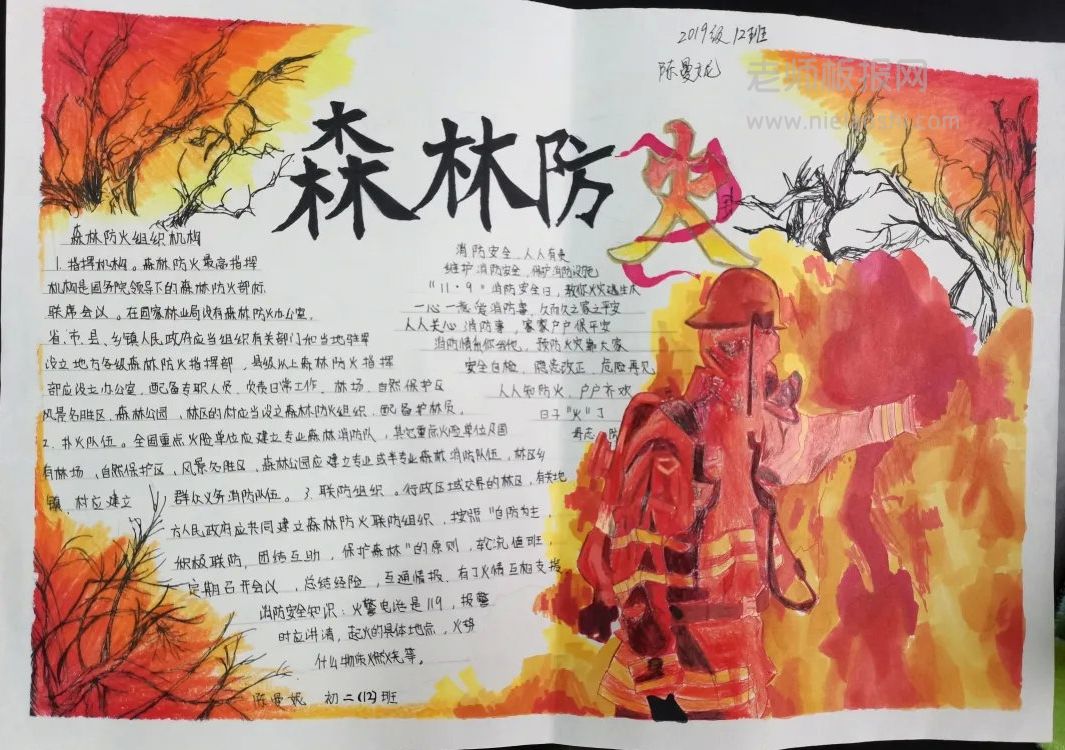 2019级12班
陈曼妮
老师板报网
森林防火
森林防火组织机构
1.指挥机构。森林防火最高指挥
机构是国务院领导下的森林防火部际
联席会议。在国家林业局设有森林防火办公室。
省、市、县、乡镇人民政府应当组织有关部门和当地驻军
设立地方各级森林防火指挥部,县级以上森林防火指挥
部应设立办公室,配备专职人员,负责日常工作。林场、自然保护区
风景名胜区、森林公园、林区的村应当设立森林防火组织,配备护林员。
2.扑火队伍。全国重点火险单位应建立专业森林消防队,其它重点火险单位及国
有林场、自然保护区、风景名胜区、森林公园应建立专业或半专业森林消防队伍,林区乡
镇、村应建立 群众义务消防队伍。3.联防组织。行政区域交界的林区,有关地
方人民政府应共同建立森林防火联防组织,按照“自防为主,
积极联防,团结互助,保护森林”的原则,轮流值班,
定期召开会议,总结经验,互通情报、有了火情互相支援
消防安全知识:火警电话是119,报警
时应讲清,起火的具体地点,火势
什么物质燃烧等。
陈曼妮 初二(12)班
消防安全 人人有责
维护消防安全,保护消防设施
“11·9”消防安全日,教你火灾逃生
一心一意 消防事,
人人关心消防事,家家户户保平安
消防 ,预防火灾靠大家
安全自检,隐患改正,危险再见
人人知防火,户户齐欢
日子“火”了